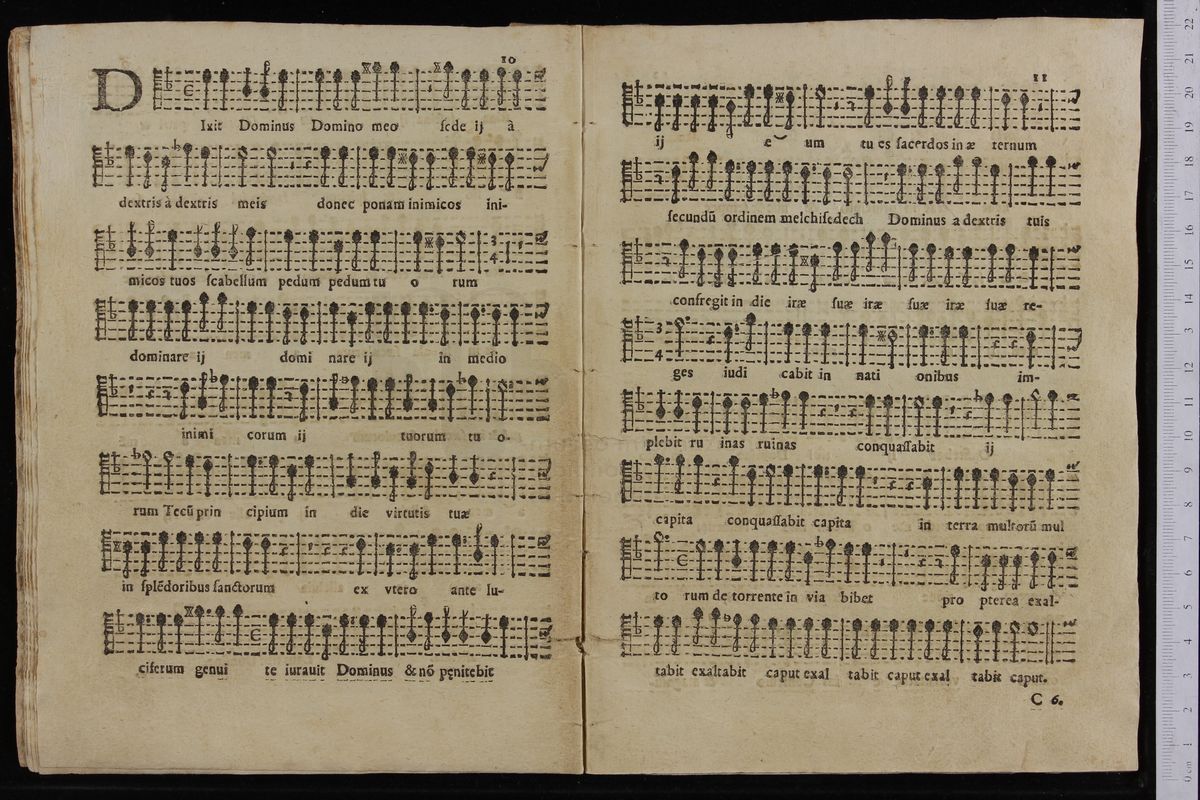 10
D
Ixit Dominus Domino meo sede ij à
dextris à dextris meis donec ponam inimicos ini-
micos tuos scabellum pedum pedum tu o rum
3
4
dominare ij domi nare ij in medio
inimi corum ij tuorum tu o-
rum Tecū prin cipium in die virtutis tuæ
in splēdoribus sanctorum ex vtero ante lu-
ciferum genui te iurauit Dominus & nō pęnitebit
11
ij e um tu es sacerdos in æ ternum
secundū ordinem melchisedech Dominus a dextris tuis
confregit in die iræ suæ iræ suæ iræ suæ re-
3
4
ges iudi cabit in nati onibus im-
plebit ru inas ruinas conquassabit ij
capita conquassabit capita in terra multorū mul
to rum de torrente in via bibet pro pterea exal-
tabit exaltabit caput exal tabit caput exal tabit caput.
C 6.